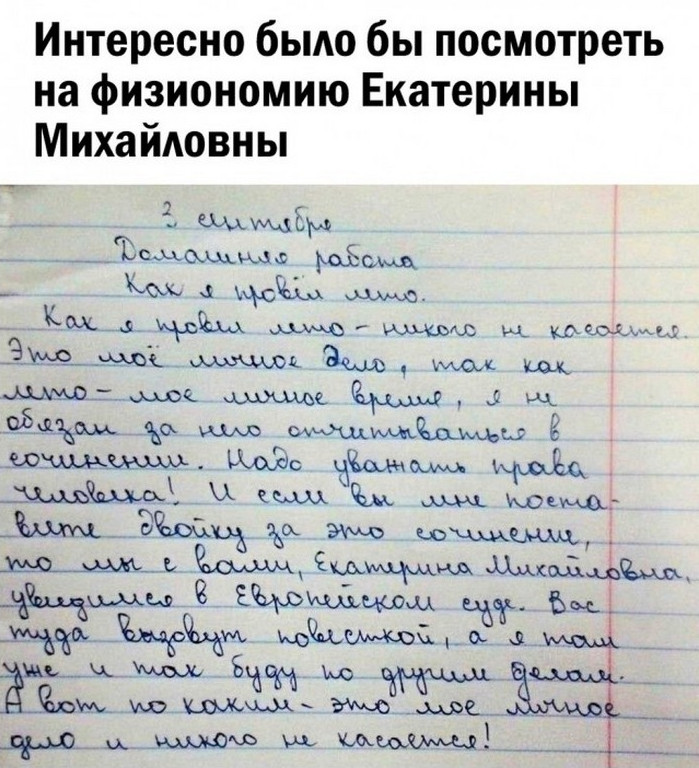 Интересно было бы посмотреть
на физиономию Екатерины
Михайловны
3 сентября
Домашняя работа
Как я провёл лето.
Как я провел лето – никого не касается.
Это моё личное дело, так как
лето – мое личное время, я не
обязан за него отчитываться в
сочинении. Надо уважать права
человека! И если вы мне поста-
вите двойку за это сочинение,
то мы с вами, Екатерина Михайловна,
увидимся в Европейском суде. Вас
туда вызовут повесткой, а я там
уже и так буду по другим делам.
А вот по каким – это мое личное
дело и никого не касается!